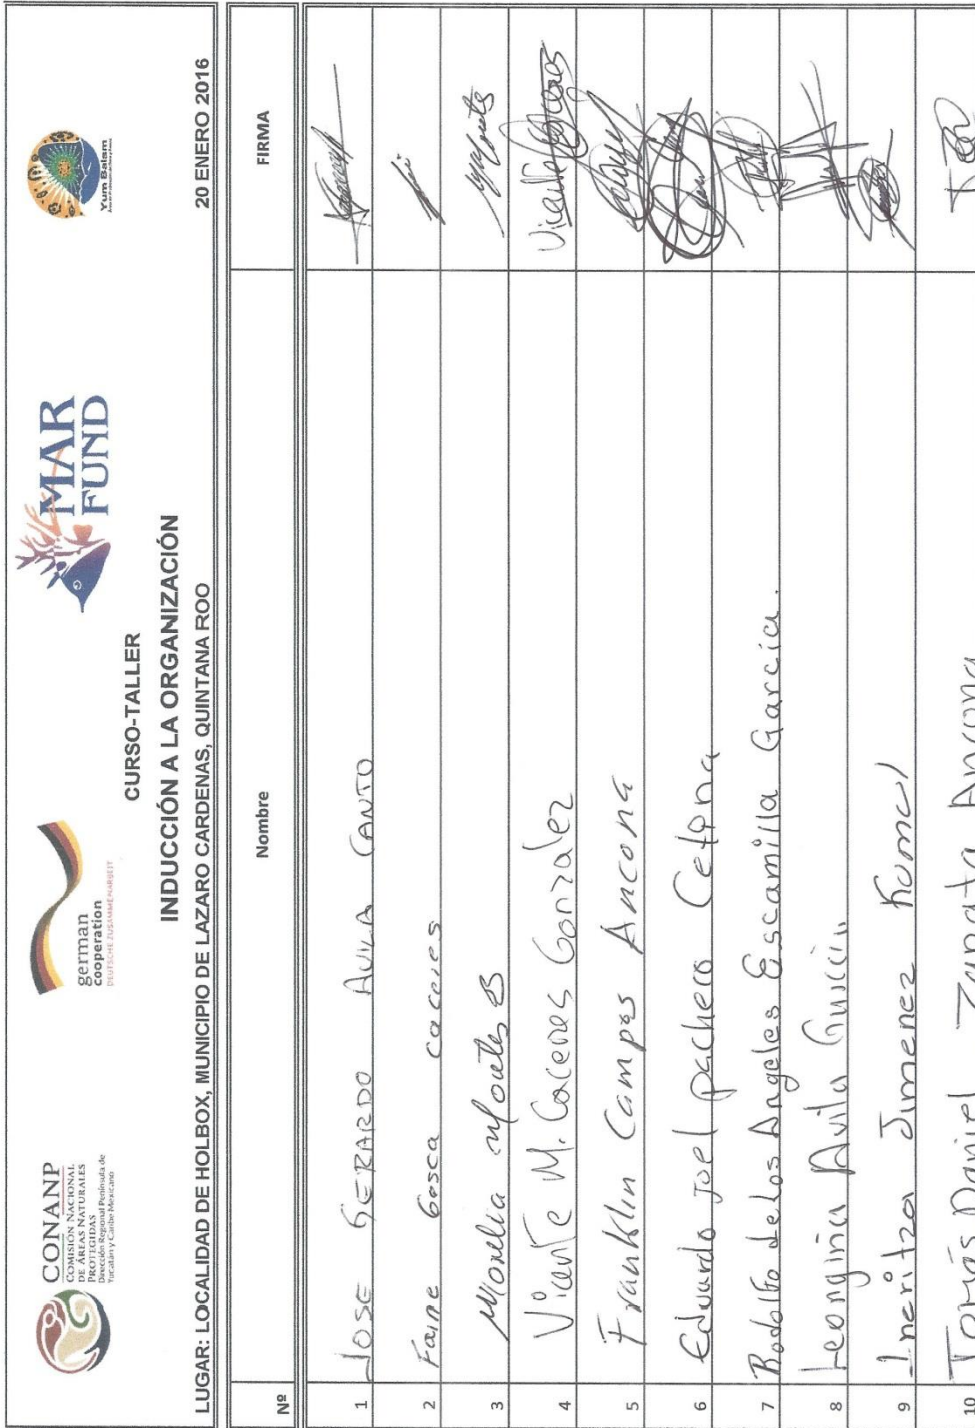 CONANP
COMISIÓN NACIONAL
DE ÁREAS NATURALES
PROTEGIDAS
Dirección Regional Península de
Yucatán y Caribe Mexicano
german
cooperation
DEUTSCHE ZUSAMMENARBEIT
MAR
FUND
Yum Balam
CURSO-TALLER
INDUCCIÓN A LA ORGANIZACIÓN
LUGAR: LOCALIDAD DE HOLBOX, MUNICIPIO DE LAZARO CARDENAS, QUINTANA ROO 20 ENERO 2016
Nº Nombre FIRMA
1 JOSE GERARDO AVILA CANTO
2 Gasca caceres
3 Morelia Montes B
4 Vicente M. Caceres Gonzalez Vicente Caceres
5 Franklin Campos Ancona
6 Eduardo joel pacheco Cetina
7 Rodolfo de los Angeles Escamilla Garcia.
8 Avila
9 Jimenez
10 Tomás Daniel Zapata Ancona